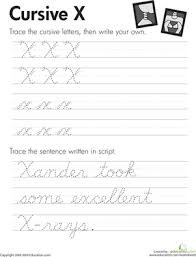 Cursive X
Trace the cursive letters, then write your own.
X X X
X X X
x x x
x x x
Trace the sentence written in script.
Xander took
some excellent
X-rays.